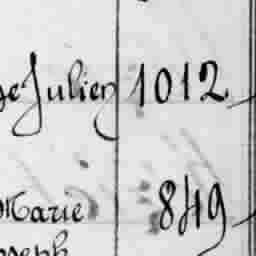 e Julien 1012
Marie 849
oseph